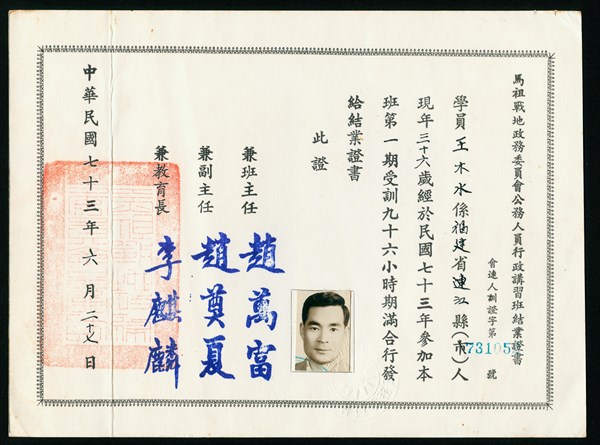 馬祖戰地政務委員會公務人員行政講習班結業證書
會連人訓證字第73105號
學員王木水係福建省連江縣(市)人
現年三十六歲經於民國七十三年參加本
班第一期受訓九十六小時期滿合行發
給結業證書
此證
兼班主任 趙萬富
兼副主任 趙奠夏
兼教育長 李麒麟
中華民國七十三年六月二十七日